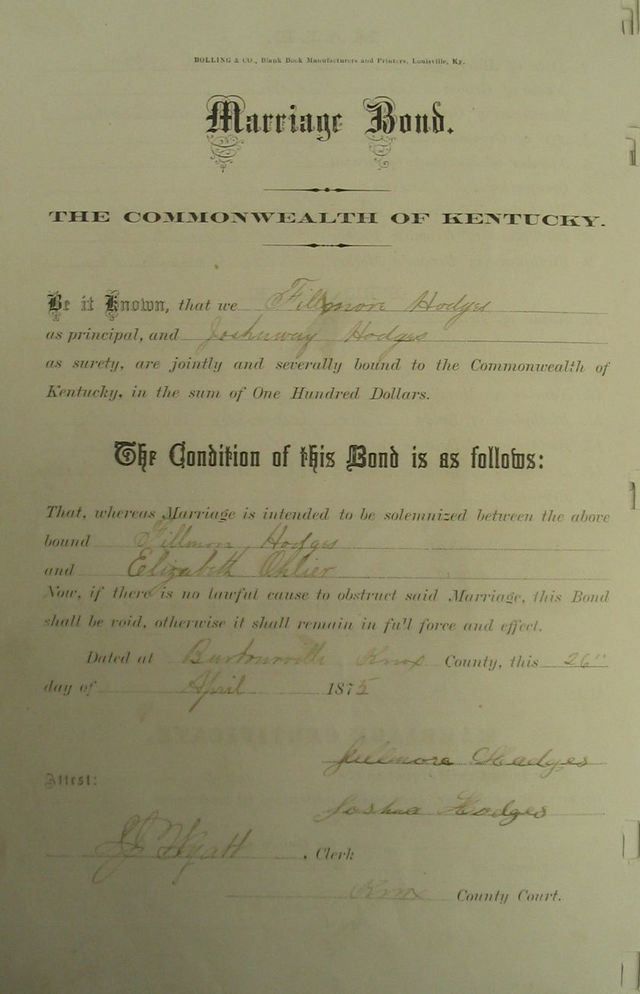 BOLLING & CO., Blank Book Manufacturers and Printers, Louisville, Ky.
Marriage Bond.
THE COMMONWEALTH OF KENTUCKY.
Be it Known, that we Fillmore Hodges
as principal, and Joshuway Hodges
as surety, are jointly and severally bound to the Commonwealth of
Kentucky, in the sum of One Hundred Dollars.
The Condition of this Bond is as follows:
That, whereas Marriage is intended to be solemnized between the above
bound Fillmon Hodges
and Elizabeth Ohlier
Now, if there is no lawful cause to obstruct said Marriage, this Bond
shall be void, otherwise it shall remain in full force and effect.
Dated at Knox County, this 26"
day of April 1875
Fillmore Hadges
Attest:
Joshua Hodges
JJ Wyatt, Clerk
Knox County Court.